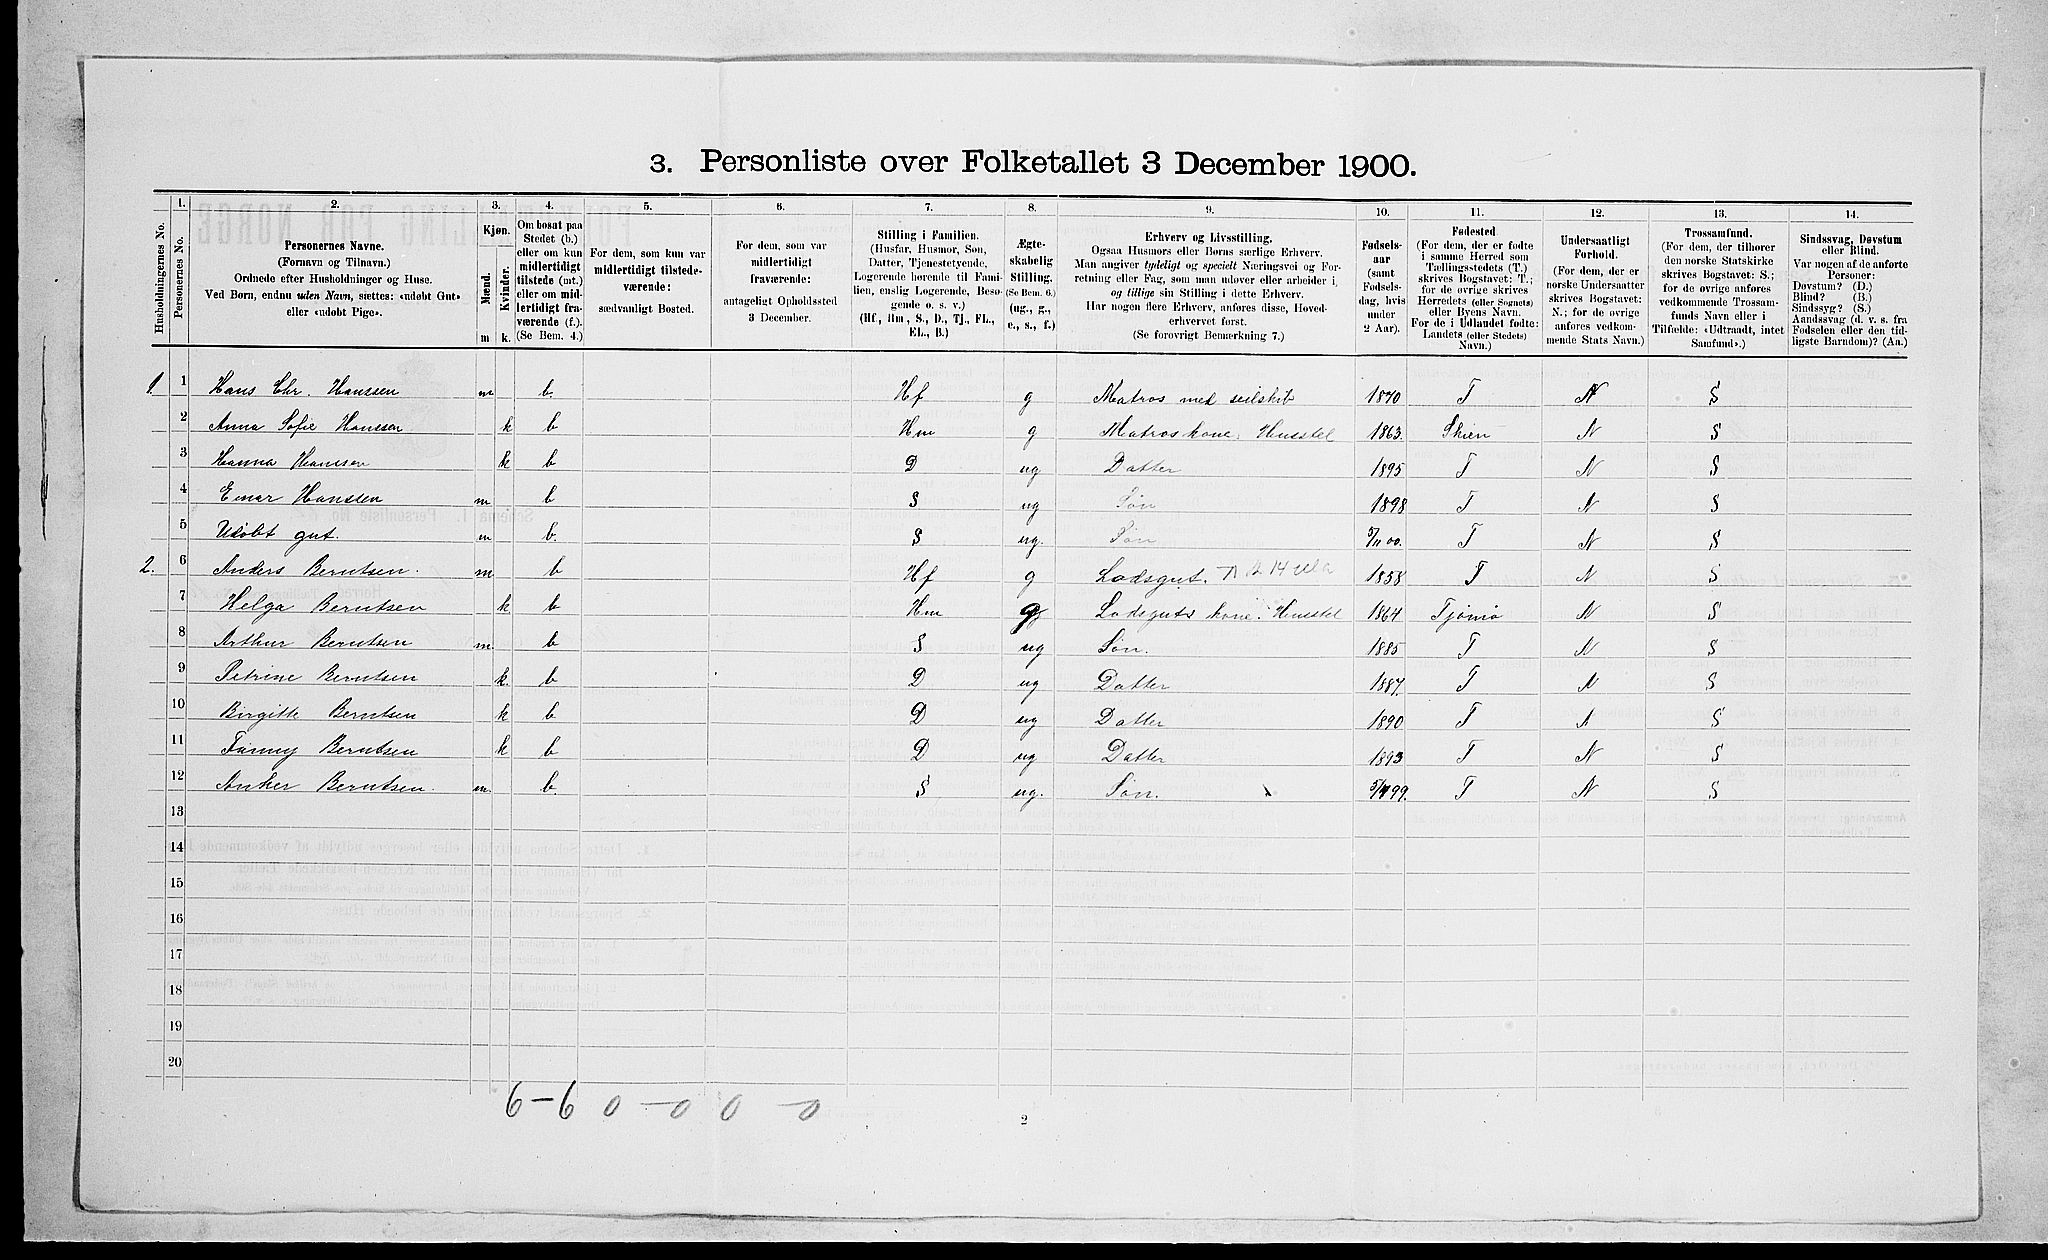 3. Personliste over Folketallet 3 December 1900.
Husholdningernes No.
1.
Personernes No.
2.
Personernes Navne.
(Fornavn og Tilnavn.)
Ordnede efter Husholdninger og Huse.
Ved Børn, endnu uden Navn, sættes: «udøbt Gut»
eller «udøbt Pige».
3.
Kjøn.
Mænd.
Kvinder.
m
k.
4.
Om bosat paa
Stedet (b.)
eller om kun
midlertidigt
tilstede (mt.)
eller om mid-
lertidigt fra-
værende (f.).
(Se Bem. 4.)
5.
For dem, som kun var
midlertidigt tilstede-
værende:
sædvanligt Bosted.
6.
For dem, som var
midlertidigt
fraværende:
antageligt Opholdssted
3 December.
7.
Stilling i Familien.
(Husfar, Husmor, Søn,
Datter, Tjenestetyende,
Logerende hørende til Fami-
lien, enslig Logerende, Besø-
gende o. s. v.)
(Hf., Hm., S., D., Tj., FL.,
EL., B.)
8.
Ægte-
skabelig
Stilling.
(Se Bem. 6.)
(ug., g.,
e., s., f.)
9.
Erhverv og Livsstilling.
Ogsaa Husmors eller Børns særlige Erhverv.
Man angiver tydeligt og specielt Næringsvei og For-
retning eller Fag, som man udøver eller arbeider i,
og tillige sin Stilling i dette Erhverv.
Har nogen flere Erhverv, anføres disse, Hoved-
erhvervet først.
(Se forøvrigt Bemærkning 7.)
10.
Fødsels-
aar
(samt
Fødsels-
dag, hvis
under
2 Aar).
11.
Fødested.
(For dem, der er fødte
i samme Herred som
Tællingsstedets (T.)
skrives Bogstavet: T.;
for de øvrige skrives
Herredets (eller Sognets)
eller Byens Navn.
For de i Udlandet fødte:
Landets (eller Stedets)
Navn.)
12.
Undersaatligt
Forhold.
(For dem, der er
norske Undersaatter
skrives Bogstavet:
N.; for de øvrige
anføres vedkom-
mende Stats Navn.)
13.
Trossamfund.
(For dem, der tilhører
den norske Statskirke
skrives Bogstavet: S.;
for de øvrige anføres
vedkommende Trossam-
funds Navn eller i
Tilfælde: «Udtraadt, intet
Samfund».)
14.
Sindssvag, Døvstum
eller Blind.
Var nogen af de anførte
Personer:
Døvstum? (D.)
Blind? (B.)
Sindssyg? (S.)
Aandssvag (d. v. s. fra
Fødselen eller den tid-
ligste Barndom)? (Aa.)
1. 1 Hans Chr. Hanssen m b. Hf g Matros med seilskib 1870 T N S
2 Anna Sofie Hanssen k b Hm g Matroskone, Husstel 1863. Skien N S
3 Hanna Hanssen k b D ug Datter 1895 T N S
4 Einar Hanssen m b S ug Søn 1898 T N S
5 Udøbt gut. m b. S ug. Søn 5/11 00. T N S
2. 6 Anders Berntsen. m b Hf g Lodsgut. 1858 T N S
7 Helga Berntsen k b Hm g Lodsguts kone. Husstel 1864 Tjømø N S
8 Arthur Berntsen m. b S ug Søn. 1885 T N S
9 Petrine Berntsen k. b D ug Datter 1887. T N S
10 Birgitte Berntsen k b D ug Datter 1890 T N S
11 Fanny Berntsen k b D ug Datter 1893 T N S
12 Anker Berntsen. m. b. S ug. Søn. 99. T N S
13
14
15
16
17
18
19
20
6-6 0-0 0-0
2